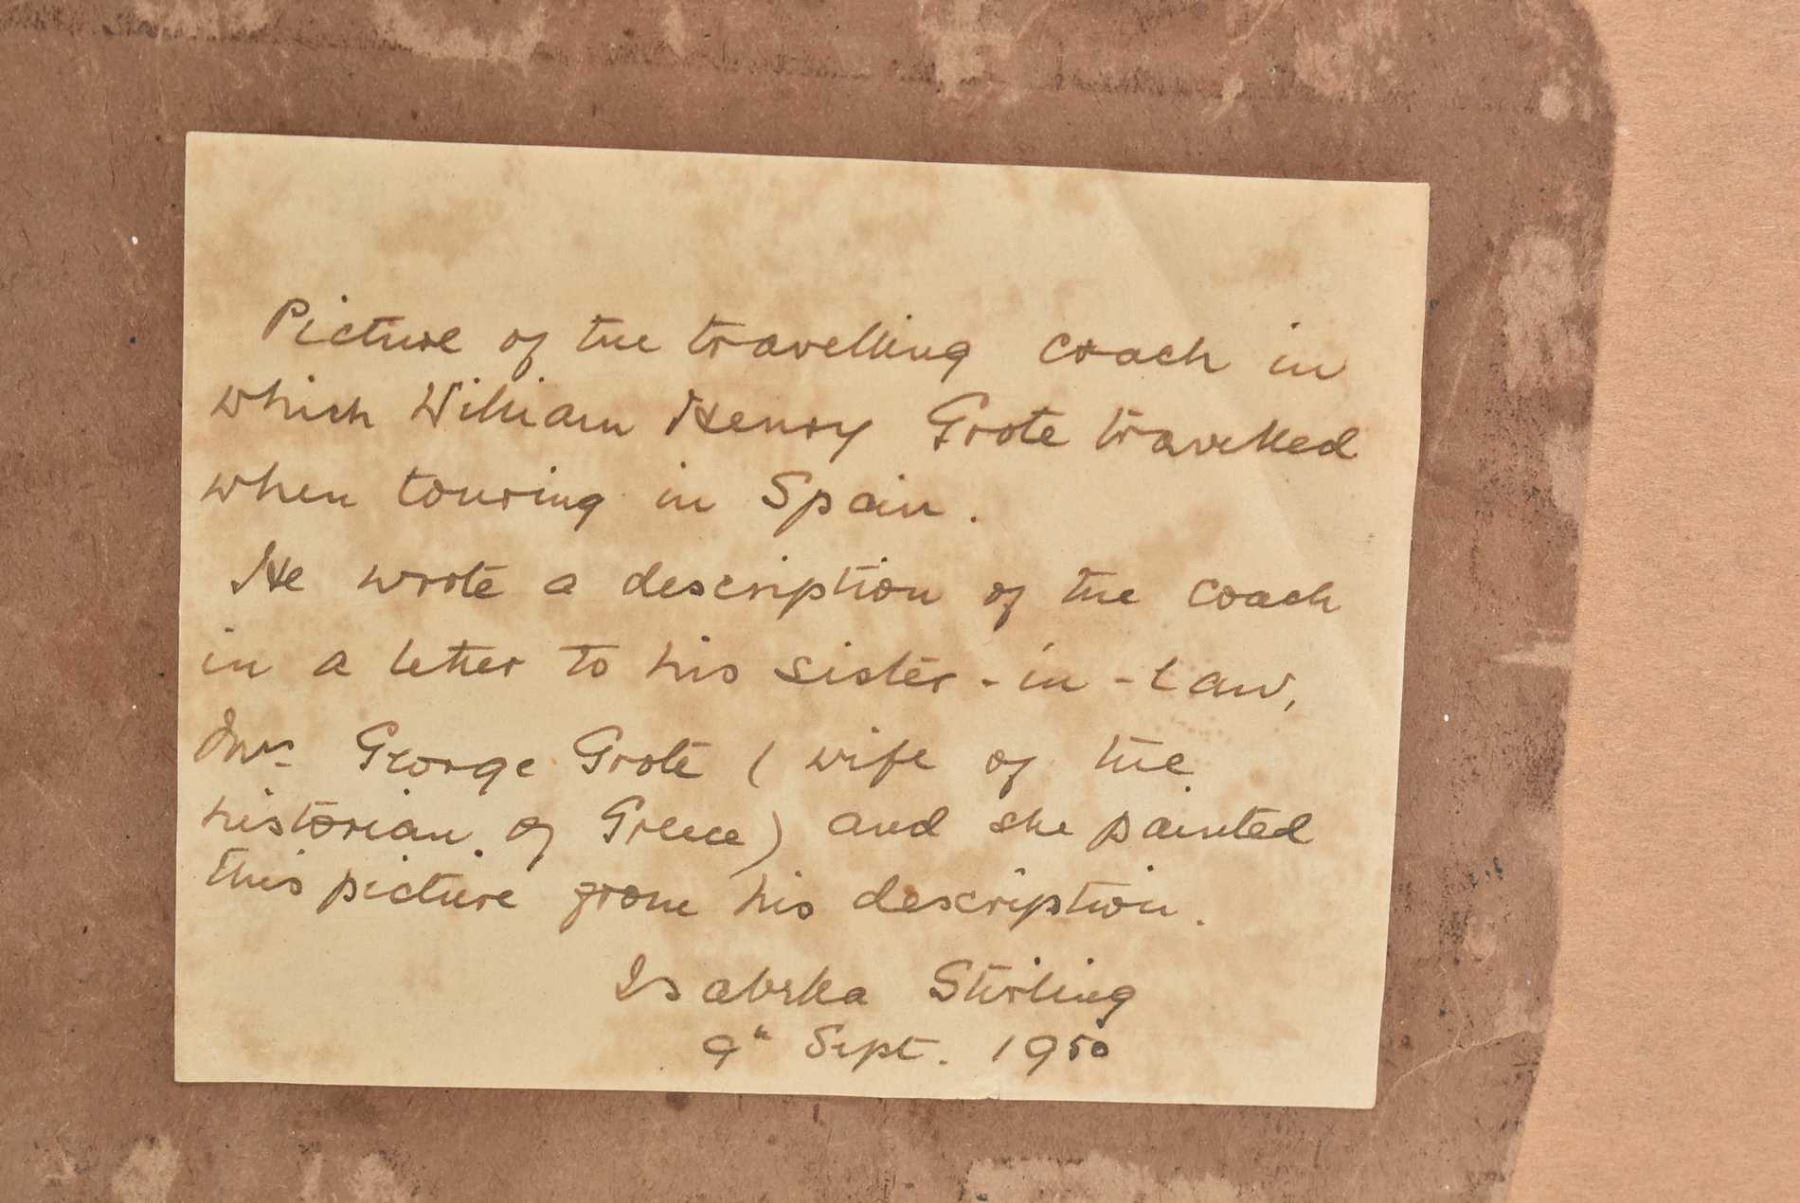 Picture of the travelling coach in
which William Henry Grote travelled
when touring in Spain.
He wrote a description of the coach
in a letter to his sister-in-Law,
Mrs George Grote (wife of the
historian of Greece) and she painted
this picture from his description.
Isabella Stirling
9th Sept. 1950